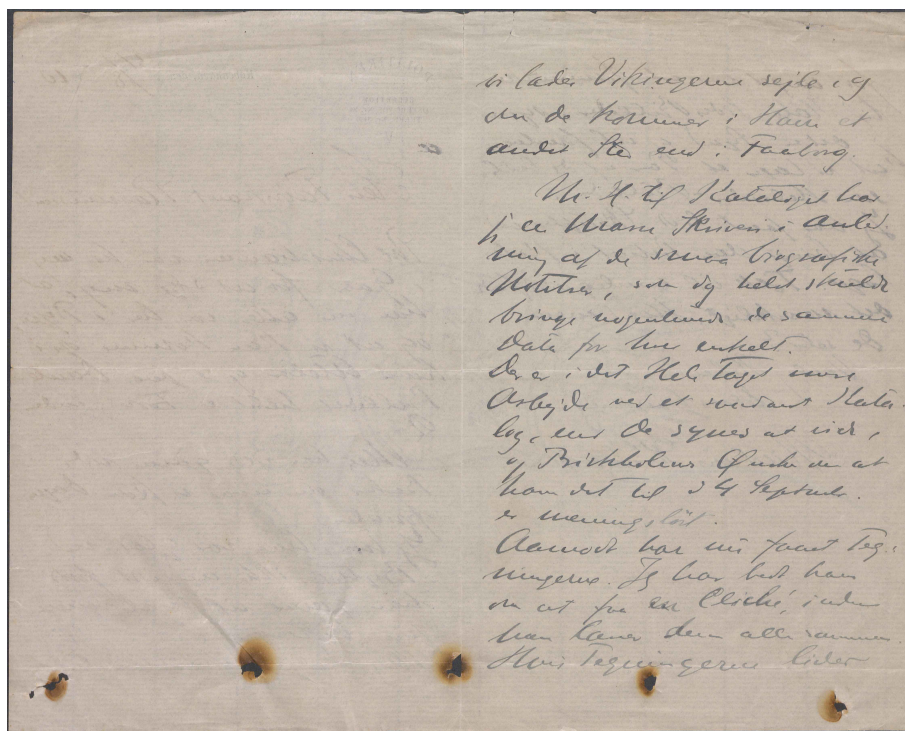 vi lader Vikingerne sejle, og
om de kommer i Havn et
andet Sted end i Faaborg.
M. H. t. Kataloget har
jeg en Masse Skriveri i Anled-
ning af de smaa biografiske
Notitser, som jeg helst skulde
bringe nogenlunde de samme
Data for hver enkelt.
Der er i det Hele Taget mere
Arbejde ved et saadant Kata-
log, end De synes at vide,
og Birkholms Ønske om at
have det til d 4 Septemb.
er meningsløst.
Aamodt har nu faaet Teg-
ningerne. Jeg har bedt ham
om at faa en Cliché, inden
han laver dem allesammen.
Hvis Tegningerne lider